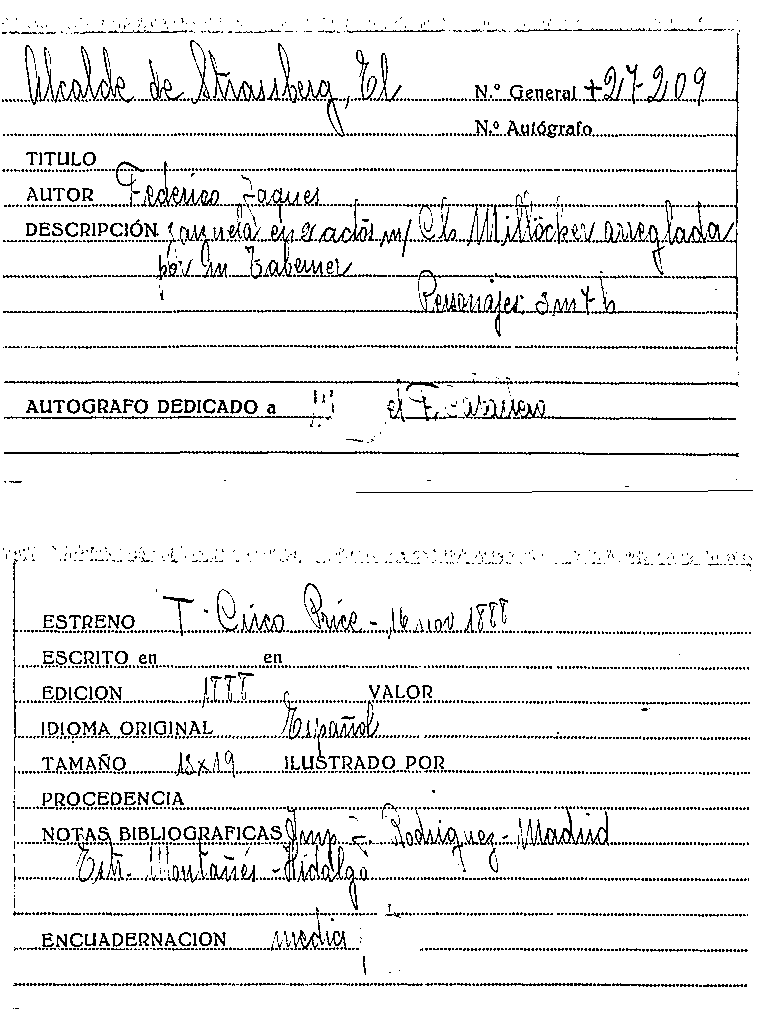 Alcalde de Strassberg, El
N.º General +27-209
N.º Autógrafo
TITULO
AUTOR Federico Jaques
DESCRIPCIÓN zarzuela en 3 actos m/ Cls Millöcker arreglada
por Sn Taberner
Personajes: 3 m 7 h
AUTOGRAFO DEDICADO a el
ESTRENO T. Circo Price - 16 nov 1888
ESCRITO en en
EDICION 1888 VALOR
IDIOMA ORIGINAL Español
TAMAÑO 13x19 ILUSTRADO POR
PROCEDENCIA
NOTAS BIBLIOGRAFICAS Imp. J. Rodriguez - Madrid
Estr. Montañés - Hidalgo
ENCUADERNACION media